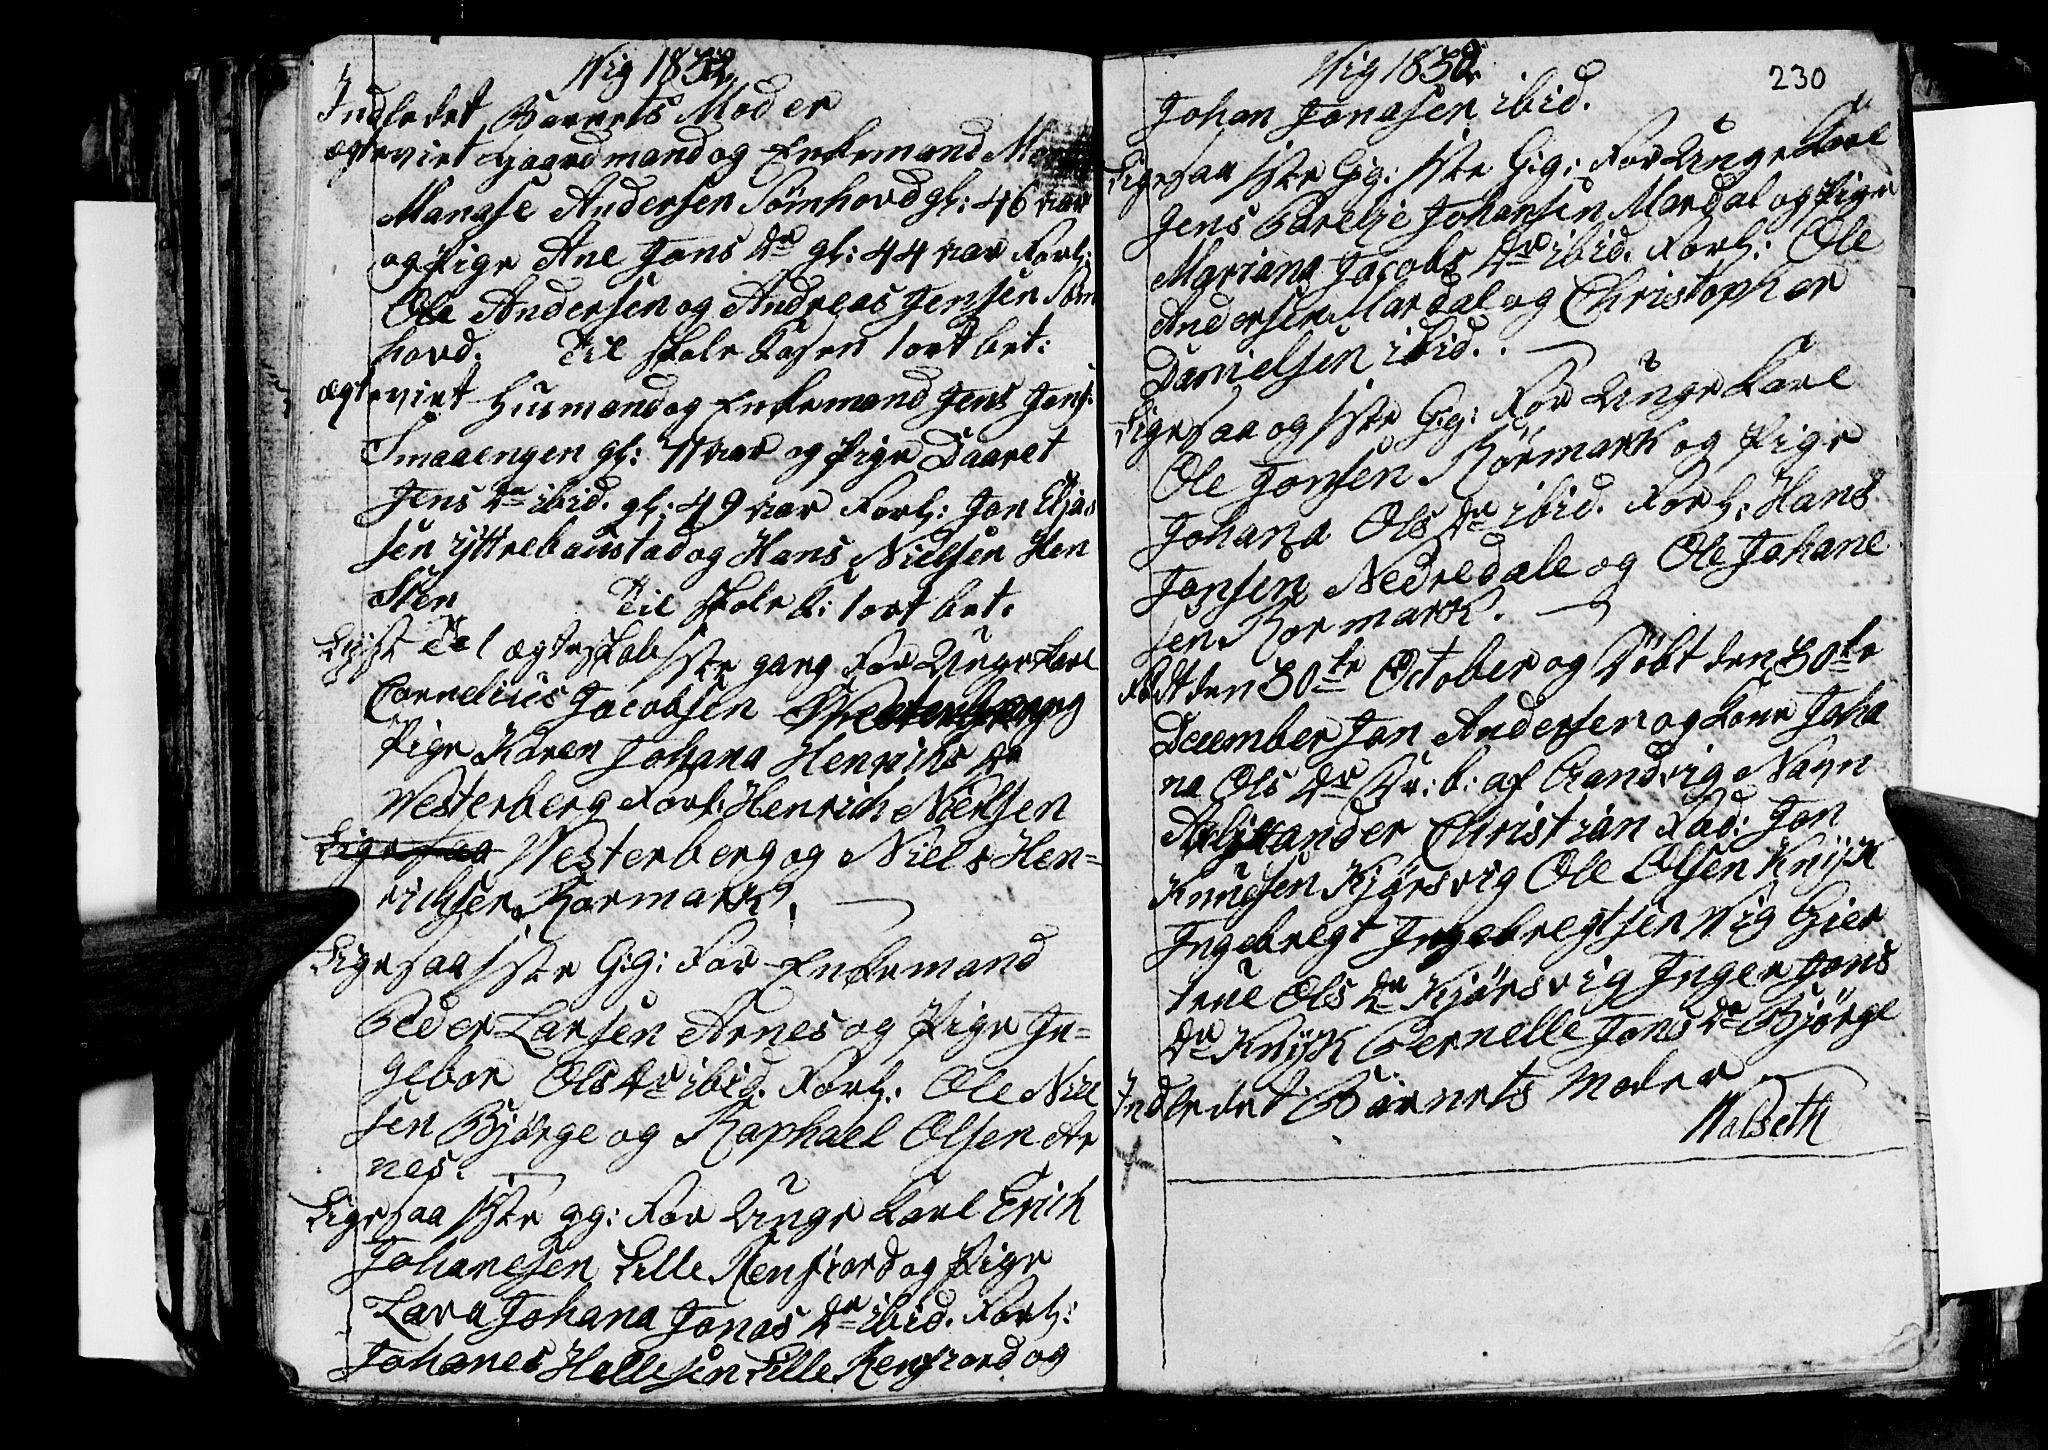 Wig 1832
Indledet Barnets Moder
ægteviet Gaardmand og Enkemand
Manase Andersen Sømhovd gl: 46 aar
og Pige Ane Jons Dr gl: 44 aar Forl:
Ole Andersen og Andreas Jensen Søm
hovd. Til Skole Casen 1 ort bet:
ægteviet Husmand og Enkemand Jens Jens:
Smaaengen gl: 71 aar og Pige Daaret
Jens Dr ibid. gl: 49 aar Forl: Jon Elias
sen yttrebaustad og Hans Nielsen Hen
Sten Til Skole C: 1 ort bet.
Lyst Til ægteskab 1ste gang For Unge Karl
Cornelius Jacobsen og
Pige Karen Johana Henrichs Dr
Westerberg Forl: Henrich Nielsen
Westerberg og Niels Hen=
richsen Kormark.
Ligesaa 1ste Gg: For Enkemand
Peder Larsen Arnes og Pige In=
gebor Ols Dr ibid. Forl: Ole Niel
sen Bjørge og Raphael Olsen Ar
nes.
Ligesaa 1ste gg: For Unge Karl Erich
Johanesen Lille Renfiord og Pige
Lava Johana Jonas Dr ibid. Forl:
Johanes Hallesen Lille Renfiord og
Wig 1832
230
Johan Jonasen ibid.
Ligesaa 1ste Gg: 1ste Gg: For Unge Karl
Jens Parelje Johansen Mardal og Pige
Mariana Jacobs Dr ibid. Forl: Ole
Andersen Mardal og Christopher
Danielsen ibid.
Ligesaa og 1ste Gg: For Unge Karl
Ole Jonsen Kormark og Pige
Johana Ols Dr ibid. Forl: Hans
Jonsen Nedredale og Ole Johane
sen Kormark.
Født den 30te October og Døbt den 30te
December Jon Andersen og Kone Joha
na Ols Dr Dr: b: af Sandvig Navn
Alexander Christian Fad: Jon
Knudsen Kjørsvig Ole Olsen Knÿk
Ingebregt Ingebregtsen Wig Gier
true Ols Dr Kjørsvig Inger Jons
Dr Knÿk Pernelle Jons Dr Bjørge
Indledet Barnets Moder
Walseth